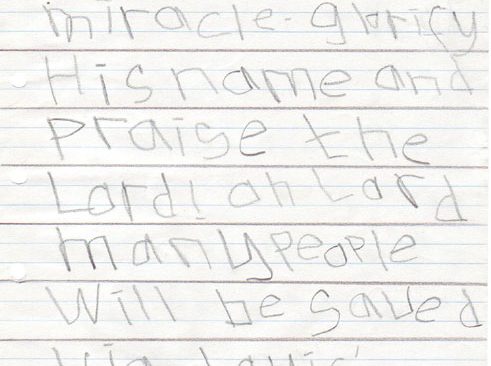 miracle. glorify
His name and
praise the
Lord! oh Lord
many people
will be saved